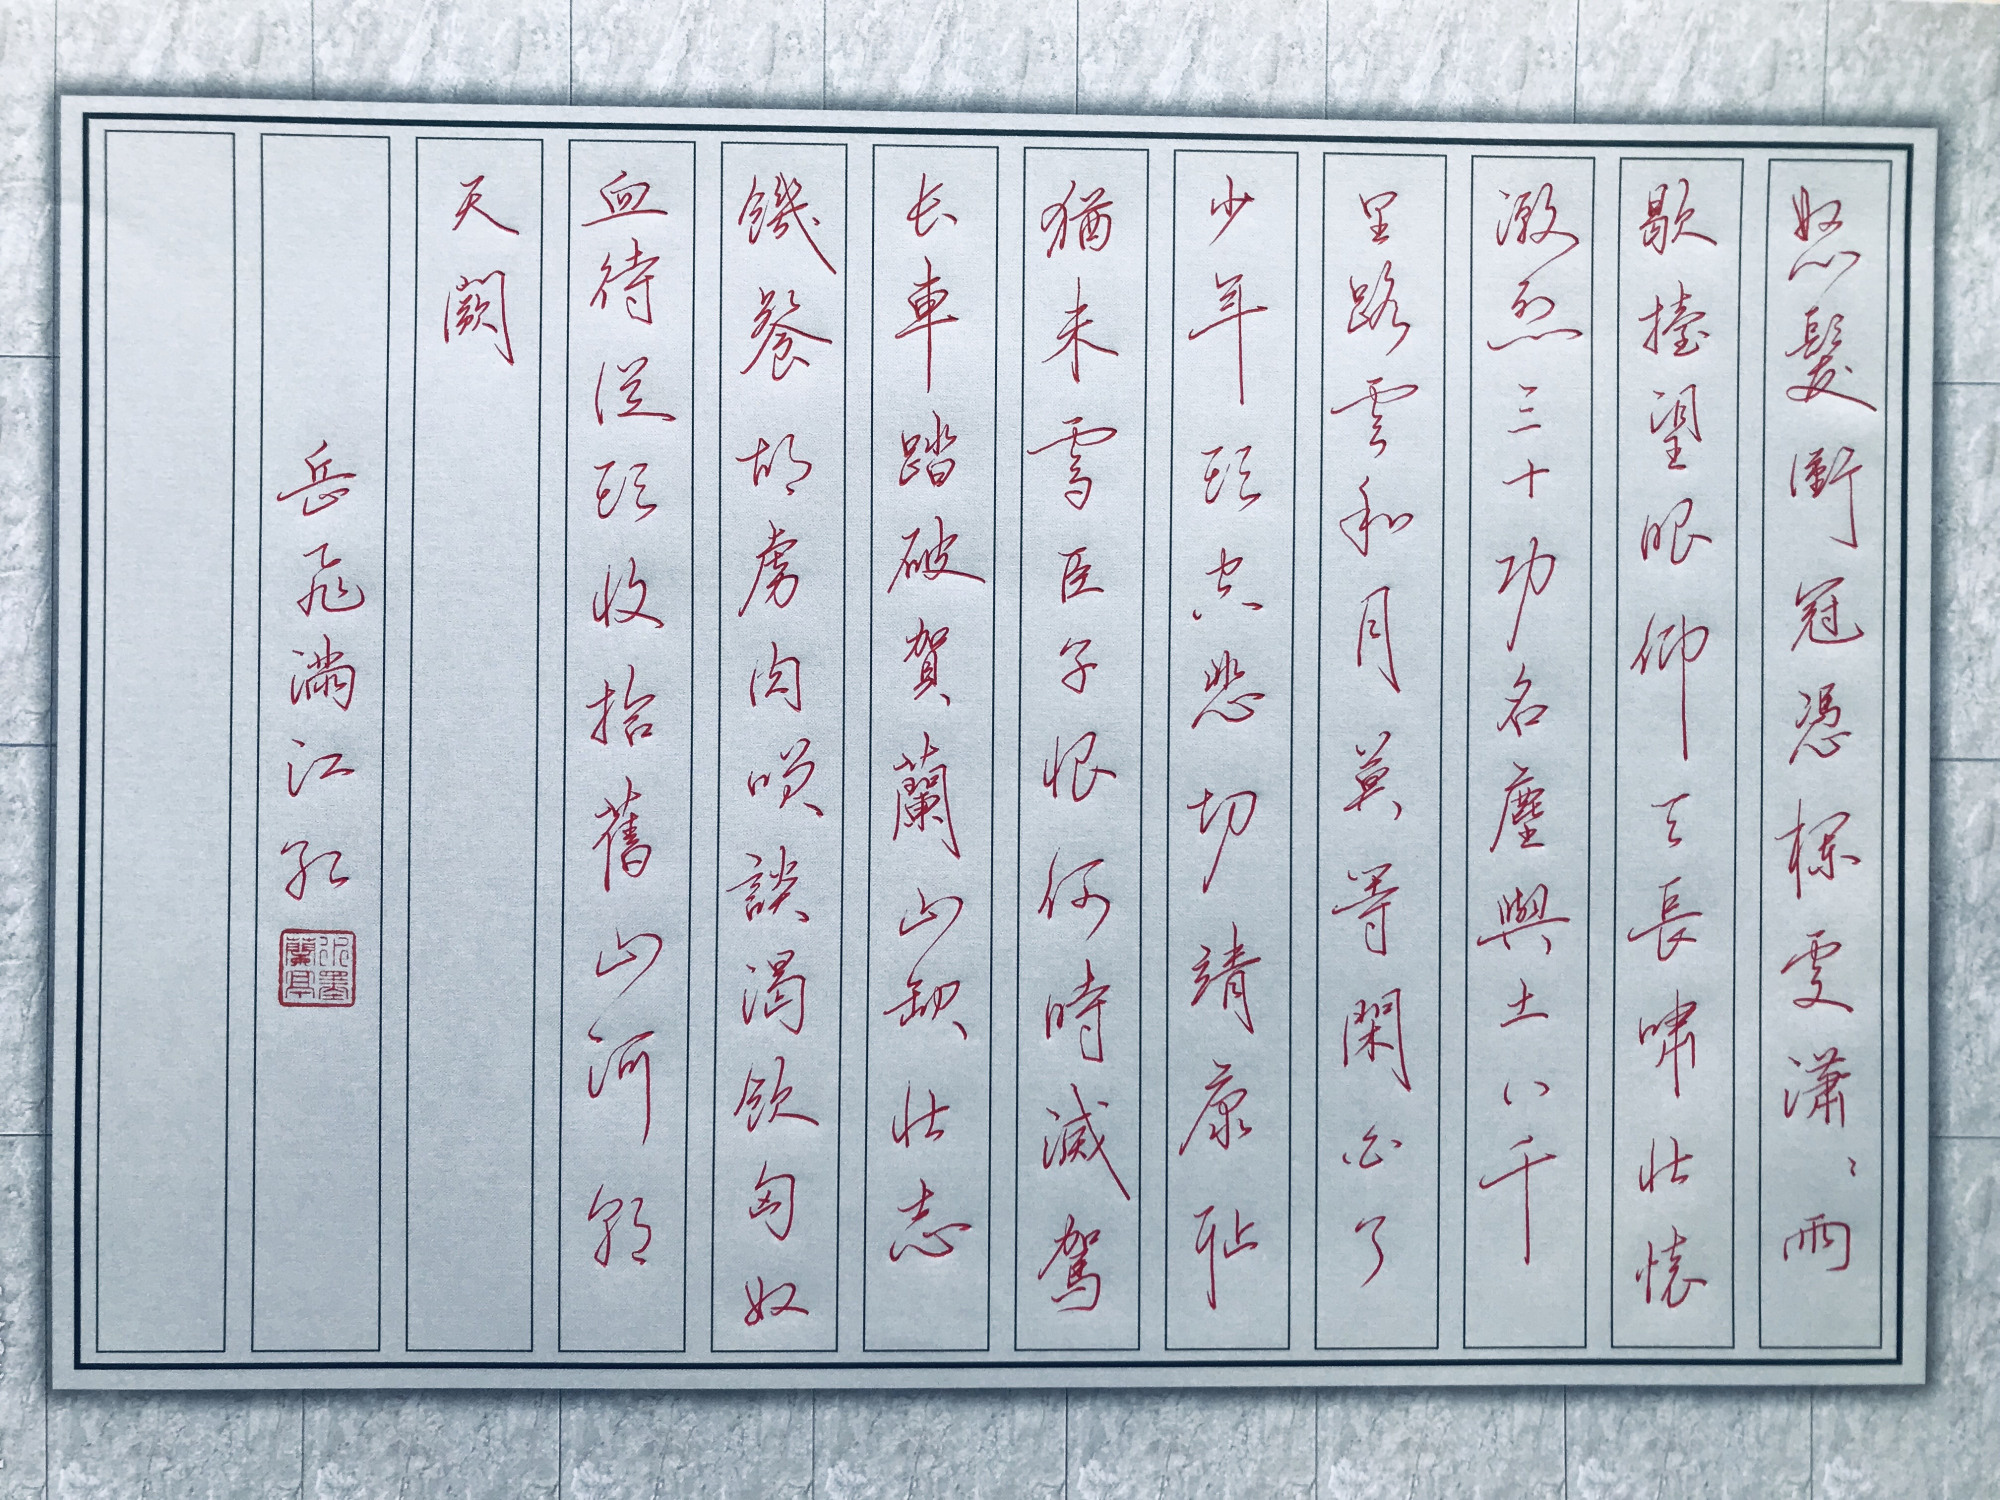 怒髮衝冠憑欄處潇〻雨
歇擡望眼仰天長嘯壯懷
激烈三十功名塵與土八千
里路雲和月莫等閑白了
少年頭空悲切靖康耻
猶未雪臣子恨何時滅駕
长車踏破賀蘭山缺壯志
饑餐胡虜肉笑談渴飲匈奴
血待從頭收拾舊山河朝
天闕
岳飛滿江紅